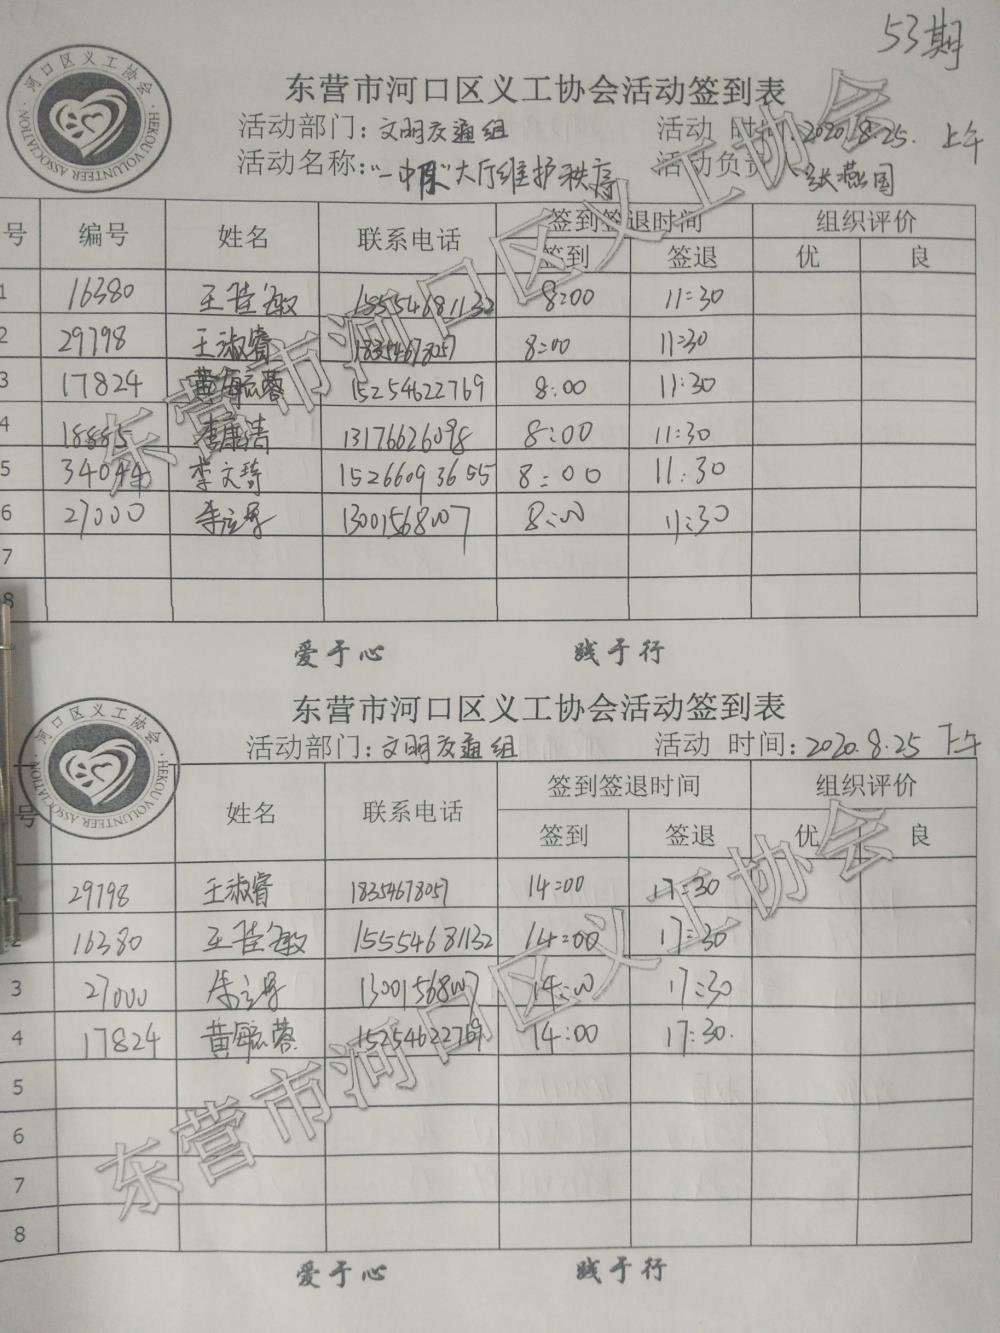 53期
河口区义工协会
HEKOU VOLUNTEER ASSOCIATION
东营市河口区义工协会活动签到表
活动部门：文明交通组 活动 时间：2020.8.25. 上午
活动名称："一中医"大厅维护秩序 活动负责 张燕国
号 编号 姓名 联系电话 签到签退时间 组织评价
签到 签退 优 良
1 16380 王佳敏 15554681132 8:00 11:30
2 29798 王淑睿 18354678057 8:00 11:30
3 17824 黄毓蓉 15254622769 8:00 11:30
4 18885 李康洁 13176626098 8:00 11:30
5 34044 李文琦 15266093655 8:00 11:30
6 27000 朱 13001568007 8:00 11:30
7
8
爱于心 践于行
河口区义工协会
HEKOU VOLUNTEER ASSOCIATION
东营市河口区义工协会活动签到表
活动部门：文明交通组 活动 时间：2020.8.25 下午
号 姓名 联系电话 签到签退时间 组织评价
签到 签退 优 良
29798 王淑睿 18354678057 14:00 17:30
2 16380 王佳敏 15554681132 14:00 17:30
3 27000 朱 13001568007 14:00 17:30
4 17824 黄毓蓉 15254622769 14:00 17:30.
5
6
7
8
爱于心 践于行
东营市河口区义工协会
东营市河口区义工协会